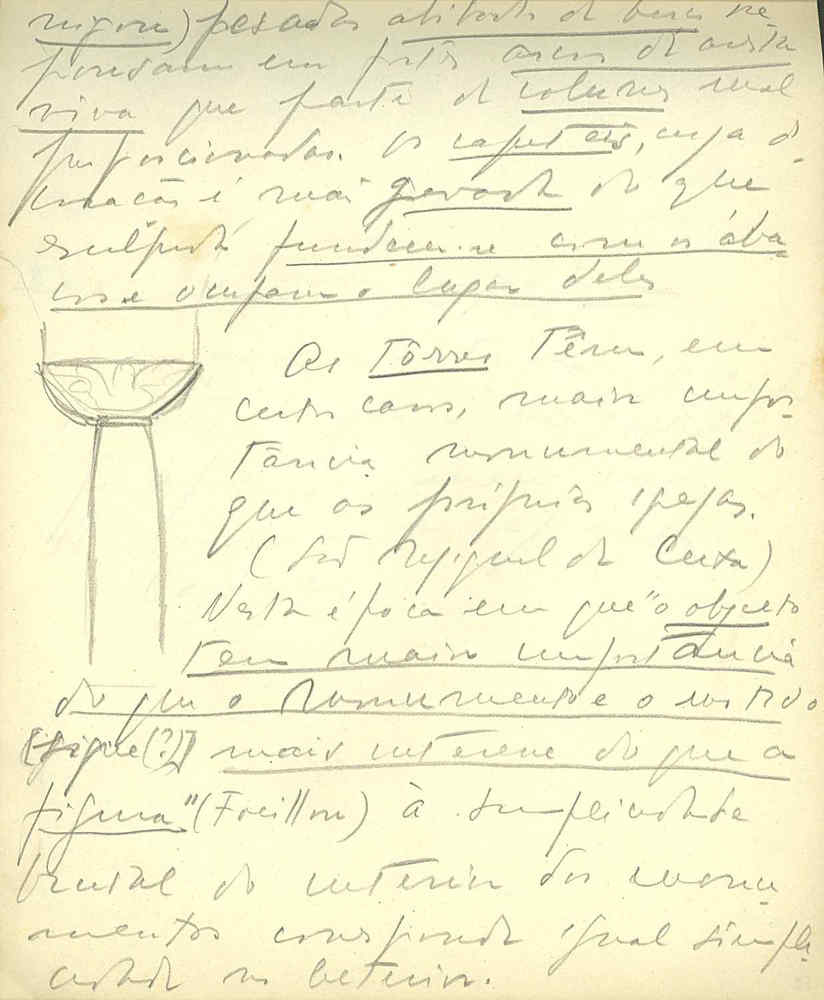 pesadas abóbadas de berço re-
pousam em fortes arcos de aresta
viva que parte de colunas mal
proporcionadas. Os capiteis, cuja de-
coração é mais gravada do que
esculpida fundem-se com os ába-
cos e ocupam o lugar deles
As Tôrres Têm, em
certos casos, maior impor-
tância monumental do
que as próprias igrejas.
(São Miguel de Cuxa)
Nesta época em que "o objecto
tem maior importância
do que o monumento e o vestido
mais interesse do que a
figura" (Focillon) à simplicidade
brutal do interior dos monu-
mentos corresponde igual simpli-
cidade no exterior.